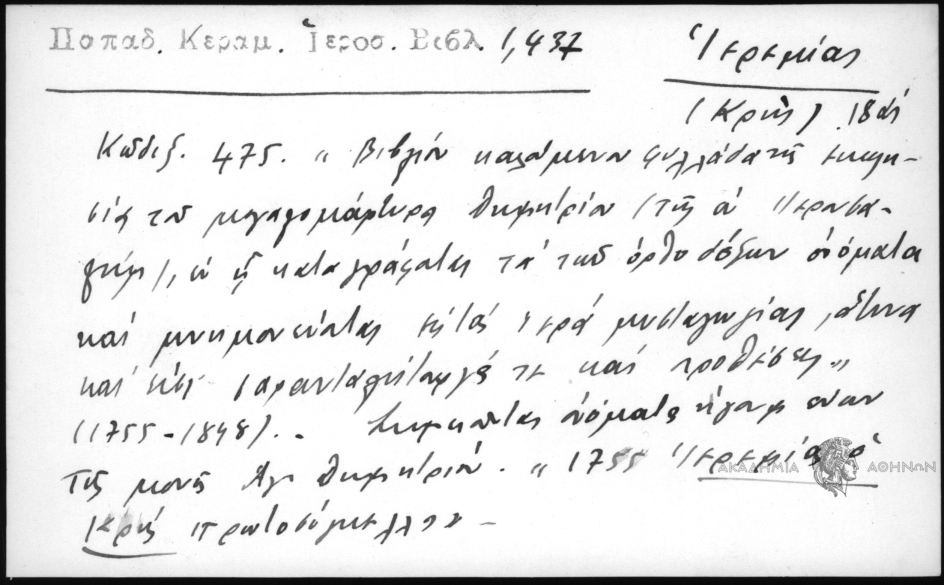 Παπαδ. Κεραμ. Ἱεροσ. Βιβλ. 1,437
Ἱερεμίας
(Κρής) 18ος
Κῶδιξ. 475. „ Βιβλίον καλούμενον φυλλάδα τῆς ἐκκλη-
σίας τοῦ μεγαλομάρτυρος Δημητρίου (τῆς ἐν Ἱερουσα-
λήμ), ἐν ᾗ καταγράφονται τὰ τῶν ὀρθοδόξων ὀνόματα
καὶ μνημονεύονται εἰς τὰς ἱερὰς μυσταγωγίας,
καὶ εἰς σαρανταλείτουργά τε καὶ προθέσεις „
(1755-1848). - ὀνόματα ἡγουμένων
τῆς μονῆς Ἁγ. Δημητρίου. „ 1755 Ἱερεμίας ὁ
Κρής πρωτοσύγκελλος -
ΑΚΑΔΗΜΙΑ ΑΘΗΝΩΝ